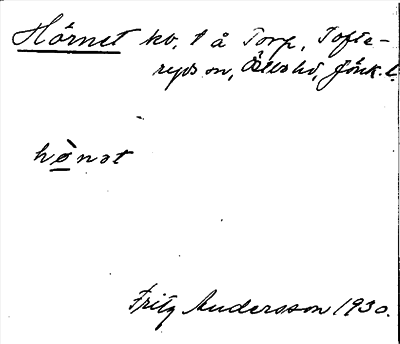 Hörnet kv. t å Torp, Tofte-
ryds sn, Östbo hd, Jönk. l.
hὸ̱nat
Fritz Andersson 1930.